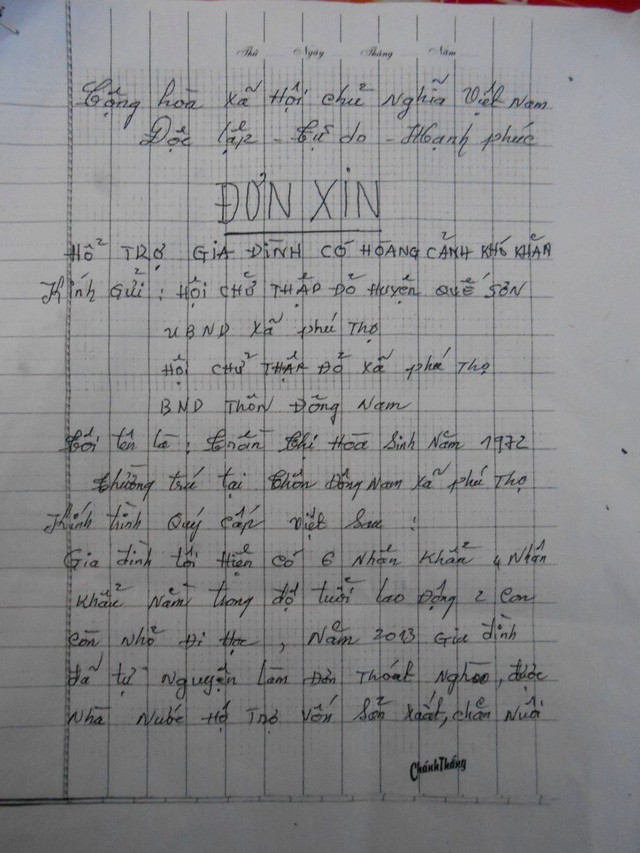 Thứ Ngày Tháng Năm
Cộng hòa xã Hội chủ nghĩa Việt Nam
Độc lập - Tự do - Hạnh phúc
ĐƠN XIN
HỔ TRỢ GIA ĐÌNH CÓ HOÀNG CẢNH KHÓ KHĂN
Kính Gửi : HỘI CHỮ THẬP ĐỎ Huyện QUẾ SƠN
UBND Xã phú Thọ
HỘI CHỮ THẬP ĐỎ Xã phú Thọ
BND Thôn Đông Nam
Tôi tên là : Trần Thị Hoà Sinh Năm 1972
Thường trú tại thôn Đông Nam Xã phú Thọ
Kính trình Quý cấp việt sau :
Gia đình tôi Hiện có 6 Nhân Khẩu 4 Nhân
Khẩu Nằm trong độ tuổi lao Động 2 con
còn nhỏ Đi Học , Năm 2013 Gia đình
đã tự Nguyện làm Đơn Thoát Nghèo, được
Nhà Nước Hộ Trợ vốn Sản xuất, chăn Nuôi
ChánhThắng